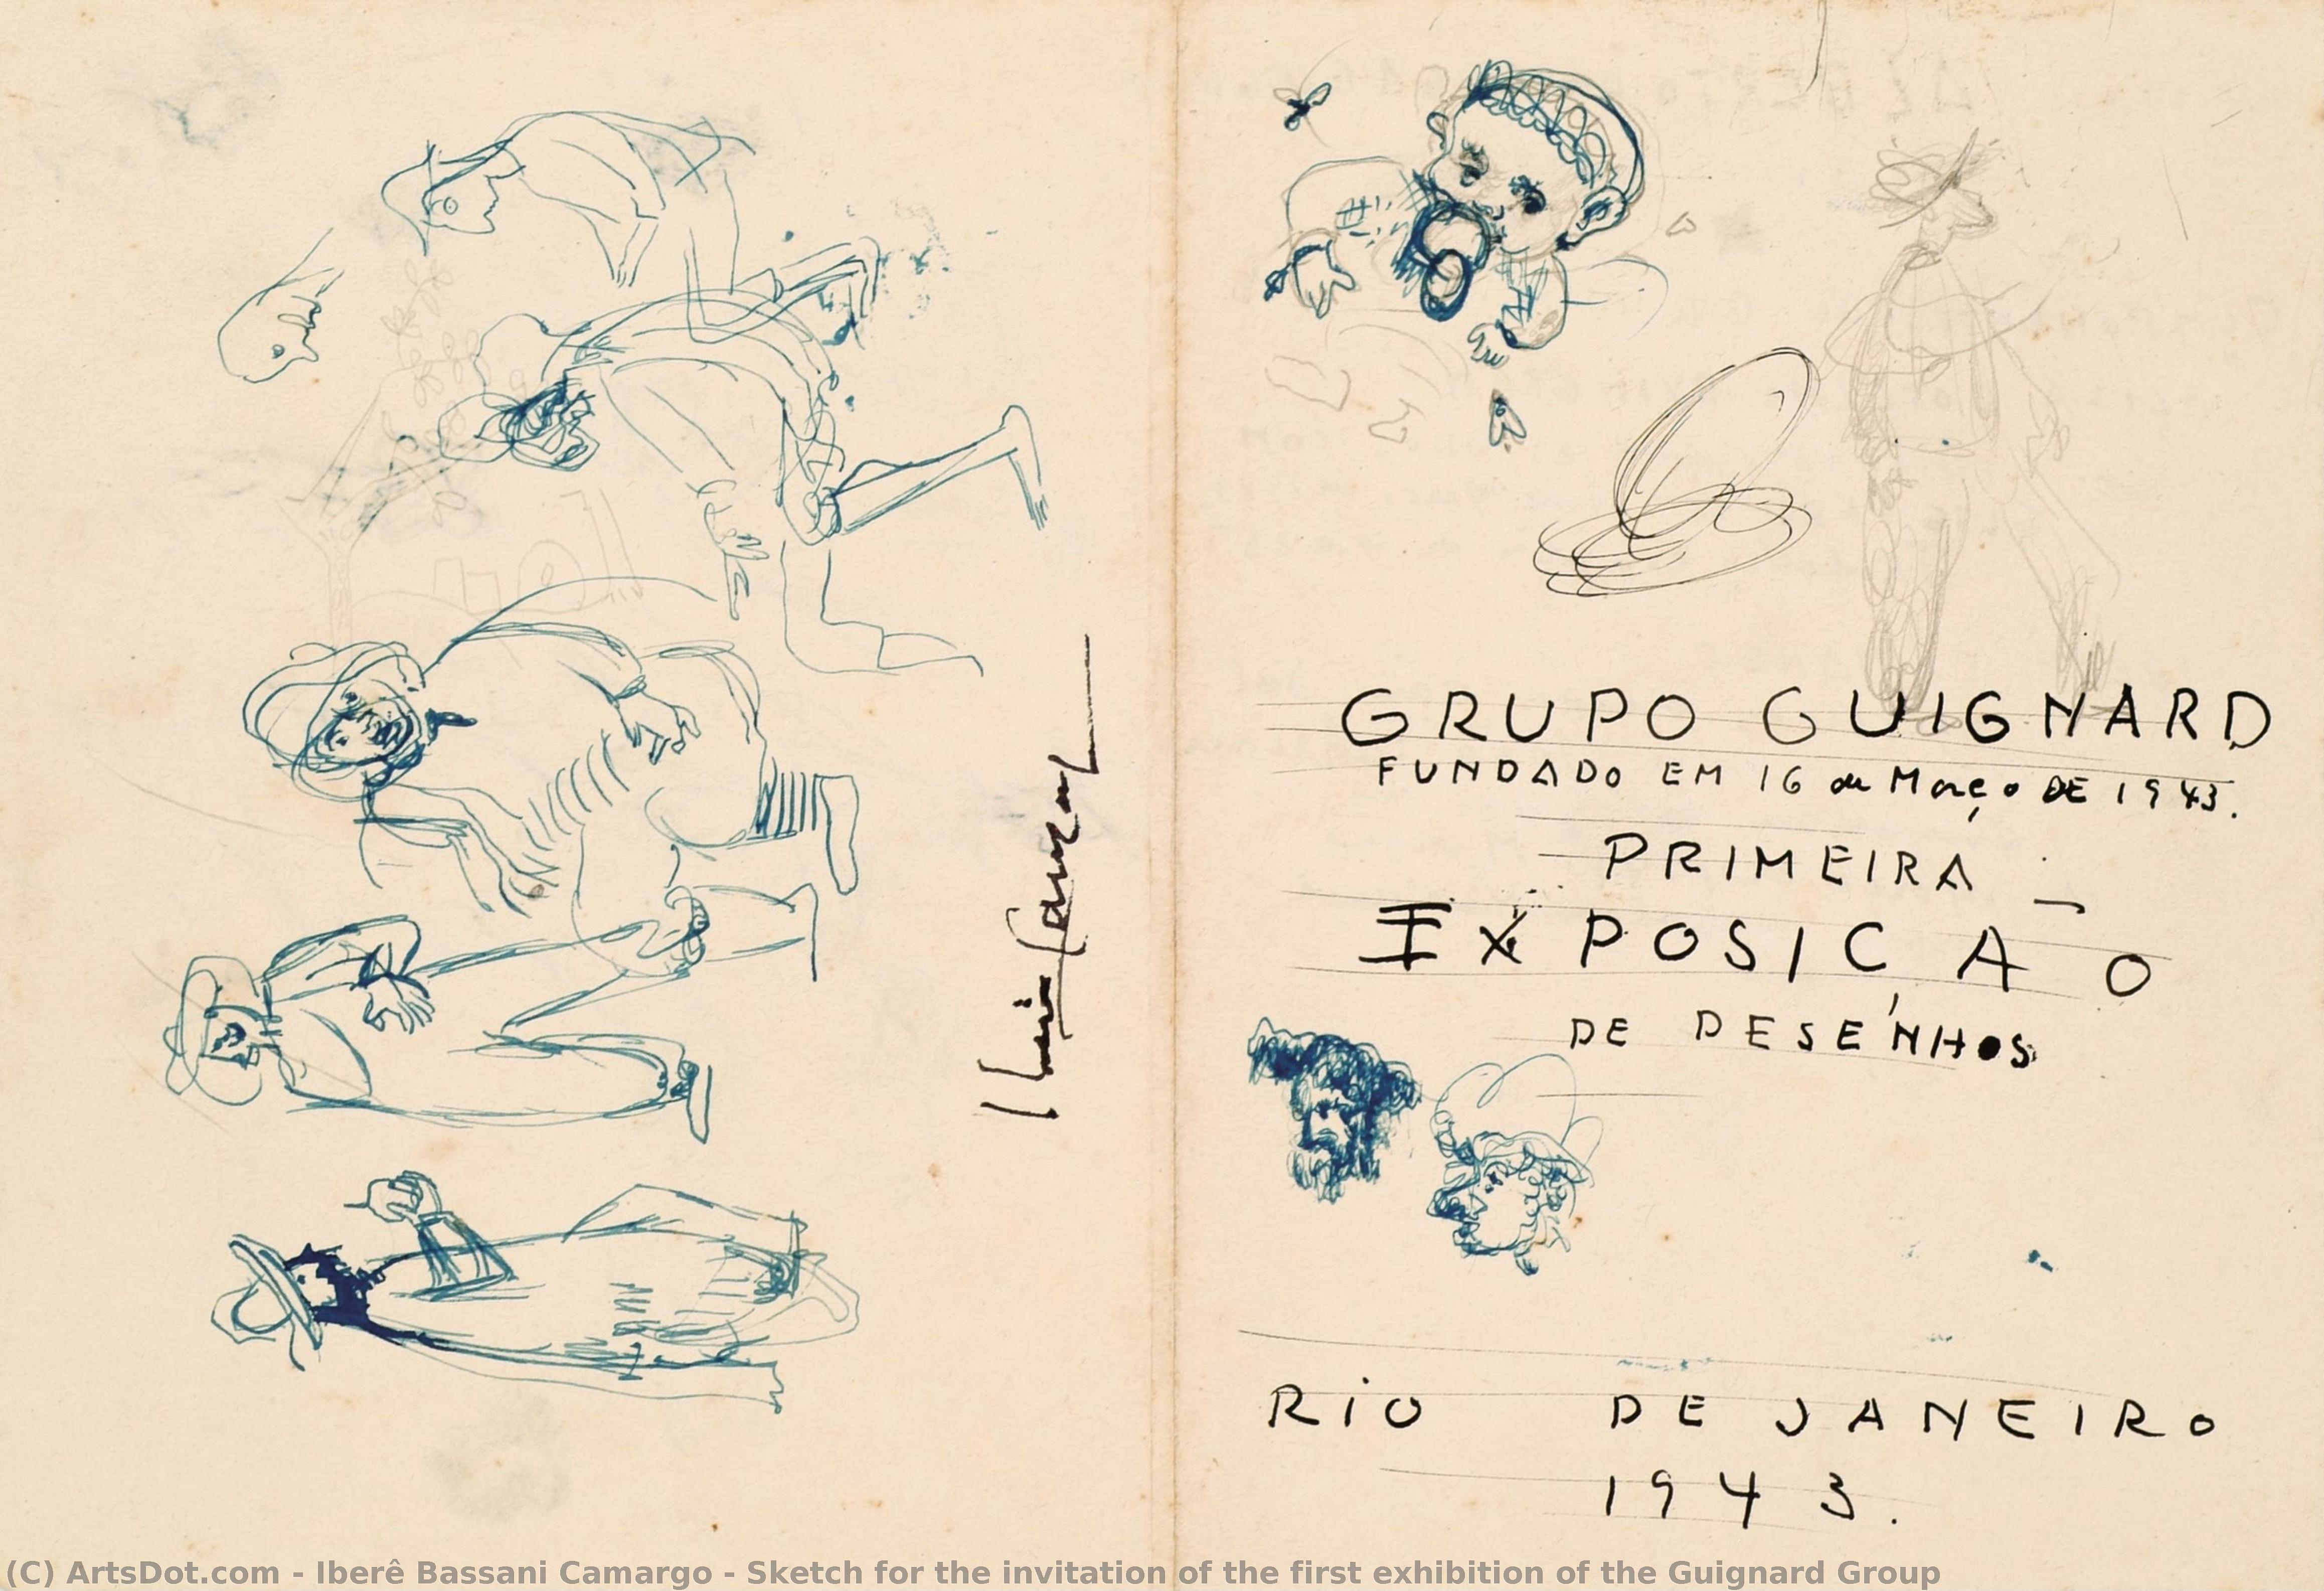 GRUPO GUIGNARD
FUNDADO EM 16 de Março DE 1943.
PRIMEIRA
EXPOSIÇÃO
DE DESENHOS
RiO DE JANEIRO
1943.
(C) ArtsDot.com - Iberê Bassani Camargo - Sketch for the invitation of the first exhibition of the Guignard Group